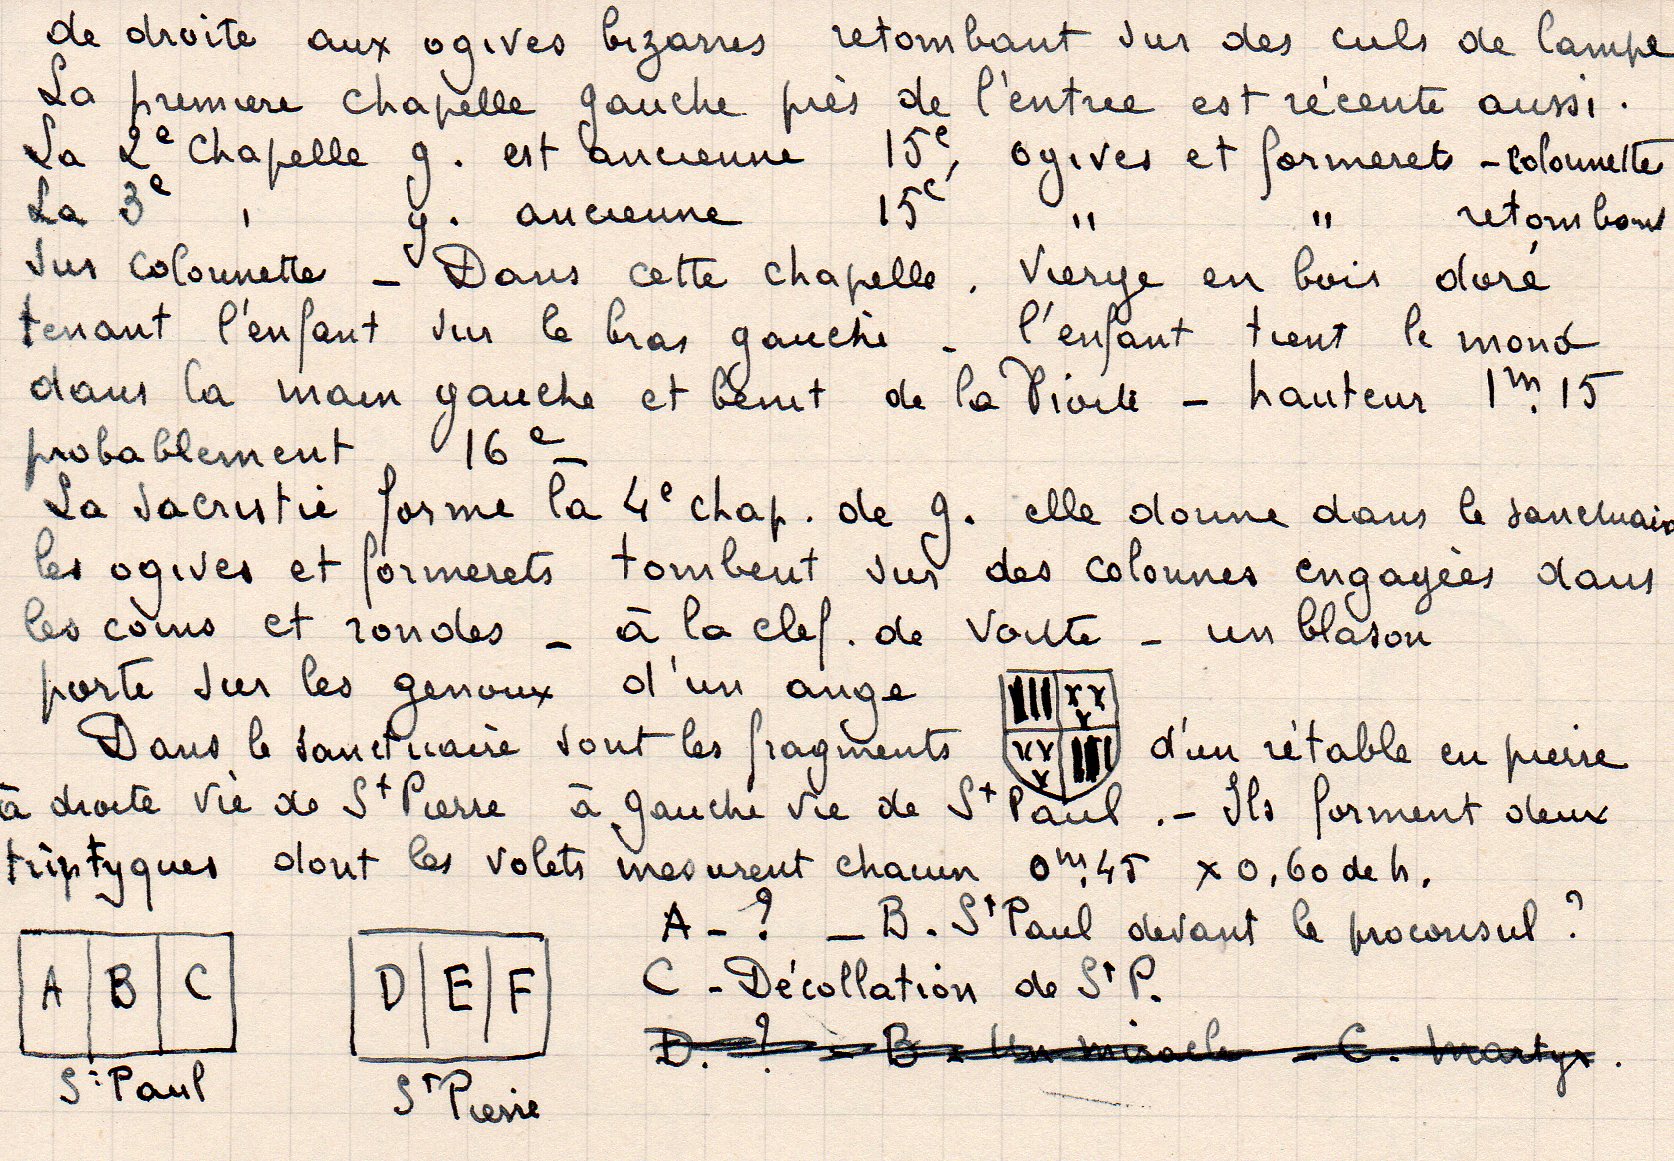 de droite aux ogives bizarres retombant sur des culs de lampe
La premiere chapelle gauche près de l'entree est récente aussi.
La 2e chapelle g. est ancienne 15e, ogives et formerets - colonnette
La 3e " g. ancienne 15e " " retombant
sur colonnette - Dans cette chapelle. Vierge en bois doré
tenant l'enfant sur le bras gauche - l'enfant tient le monde
dans la main gauche et benit de la droite - hauteur 1m.15
probablement 16e
La sacristie forme la 4e chap. de g. elle donne dans le sanctuaire
les ogives et formerets tombent sur des colonnes engagées dans
les coins et rondes - à la clef. de voute - un blason
porté sur les genoux d'un ange
Dans le sanctuaire sont les fragments d'un rétable en pierre
à droite vie de St Pierre à gauche vie de St Paul. - Ils forment deux
triptyques dont les volets mesurent chacun 0m.45 x 0,60 de h.
A - ? - B. St Paul devant le proconsul ?
C - Décollation de St P.
D. ? - B. Un miracle - C. Martyr.
A B C
D E F
St Paul
St Pierre